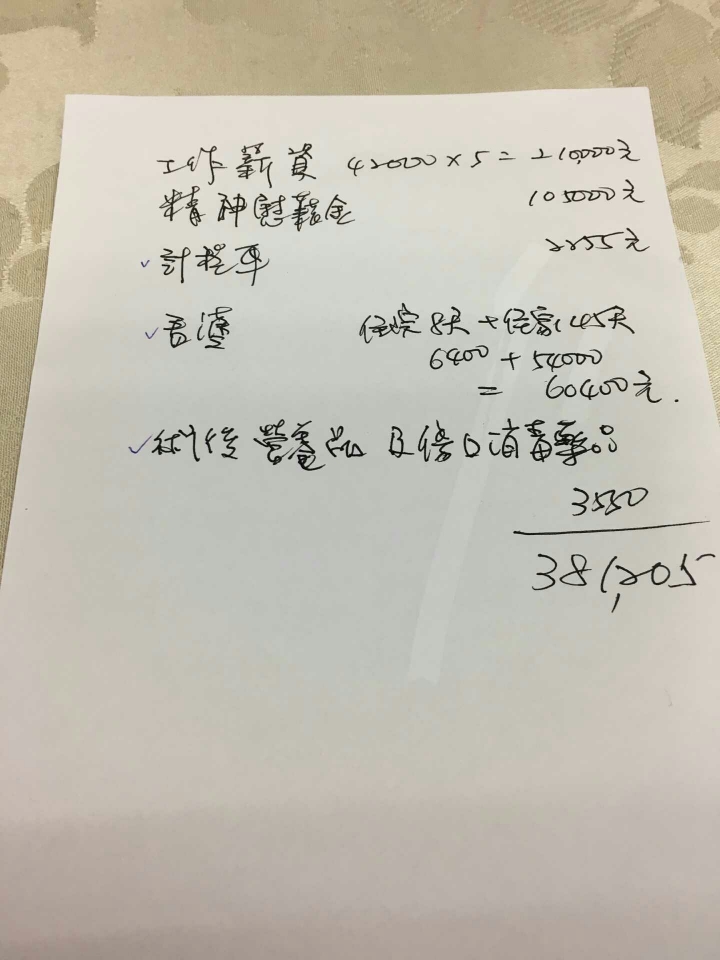 工作薪資 42000×5=210,000元
精神慰藉金 105000元
✓計程車 2255元
✓看護 住院8天+住家45天
6400+54000
=60400元.
✓術後營養品及傷口消毒藥品
3550
381,205